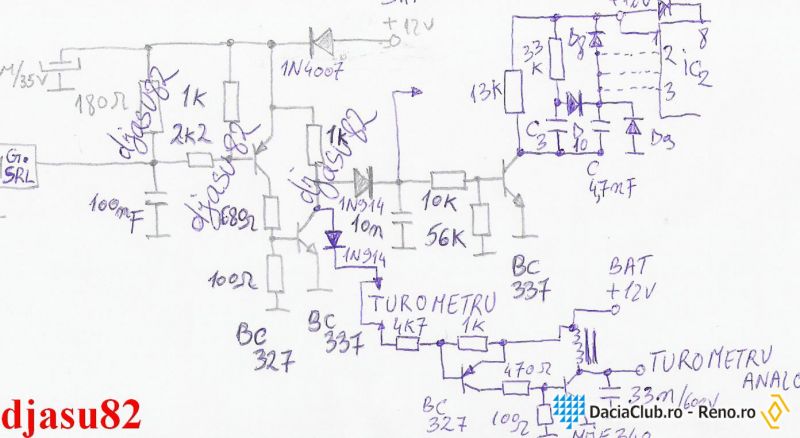 +12V
+12V
1
8
M/35V
1N4007
33K
D8
2
iC2
180Ω
1K
13K
3
djasu82
2K2
djasu82
1K
djasu82
C3
D10
D9
G.
SRL
C
4,7nF
100nF
680Ω
1N914
10n
10K
56K
1N914
100Ω
BC
337
BAT
+12V
BC
327
BC
337
TUROMETRU
4K7
1K
TUROMETRU
ANALO
470Ω
33n/600V
BC
327
100Ω
djasu82
DaciaClub.ro - Reno.ro